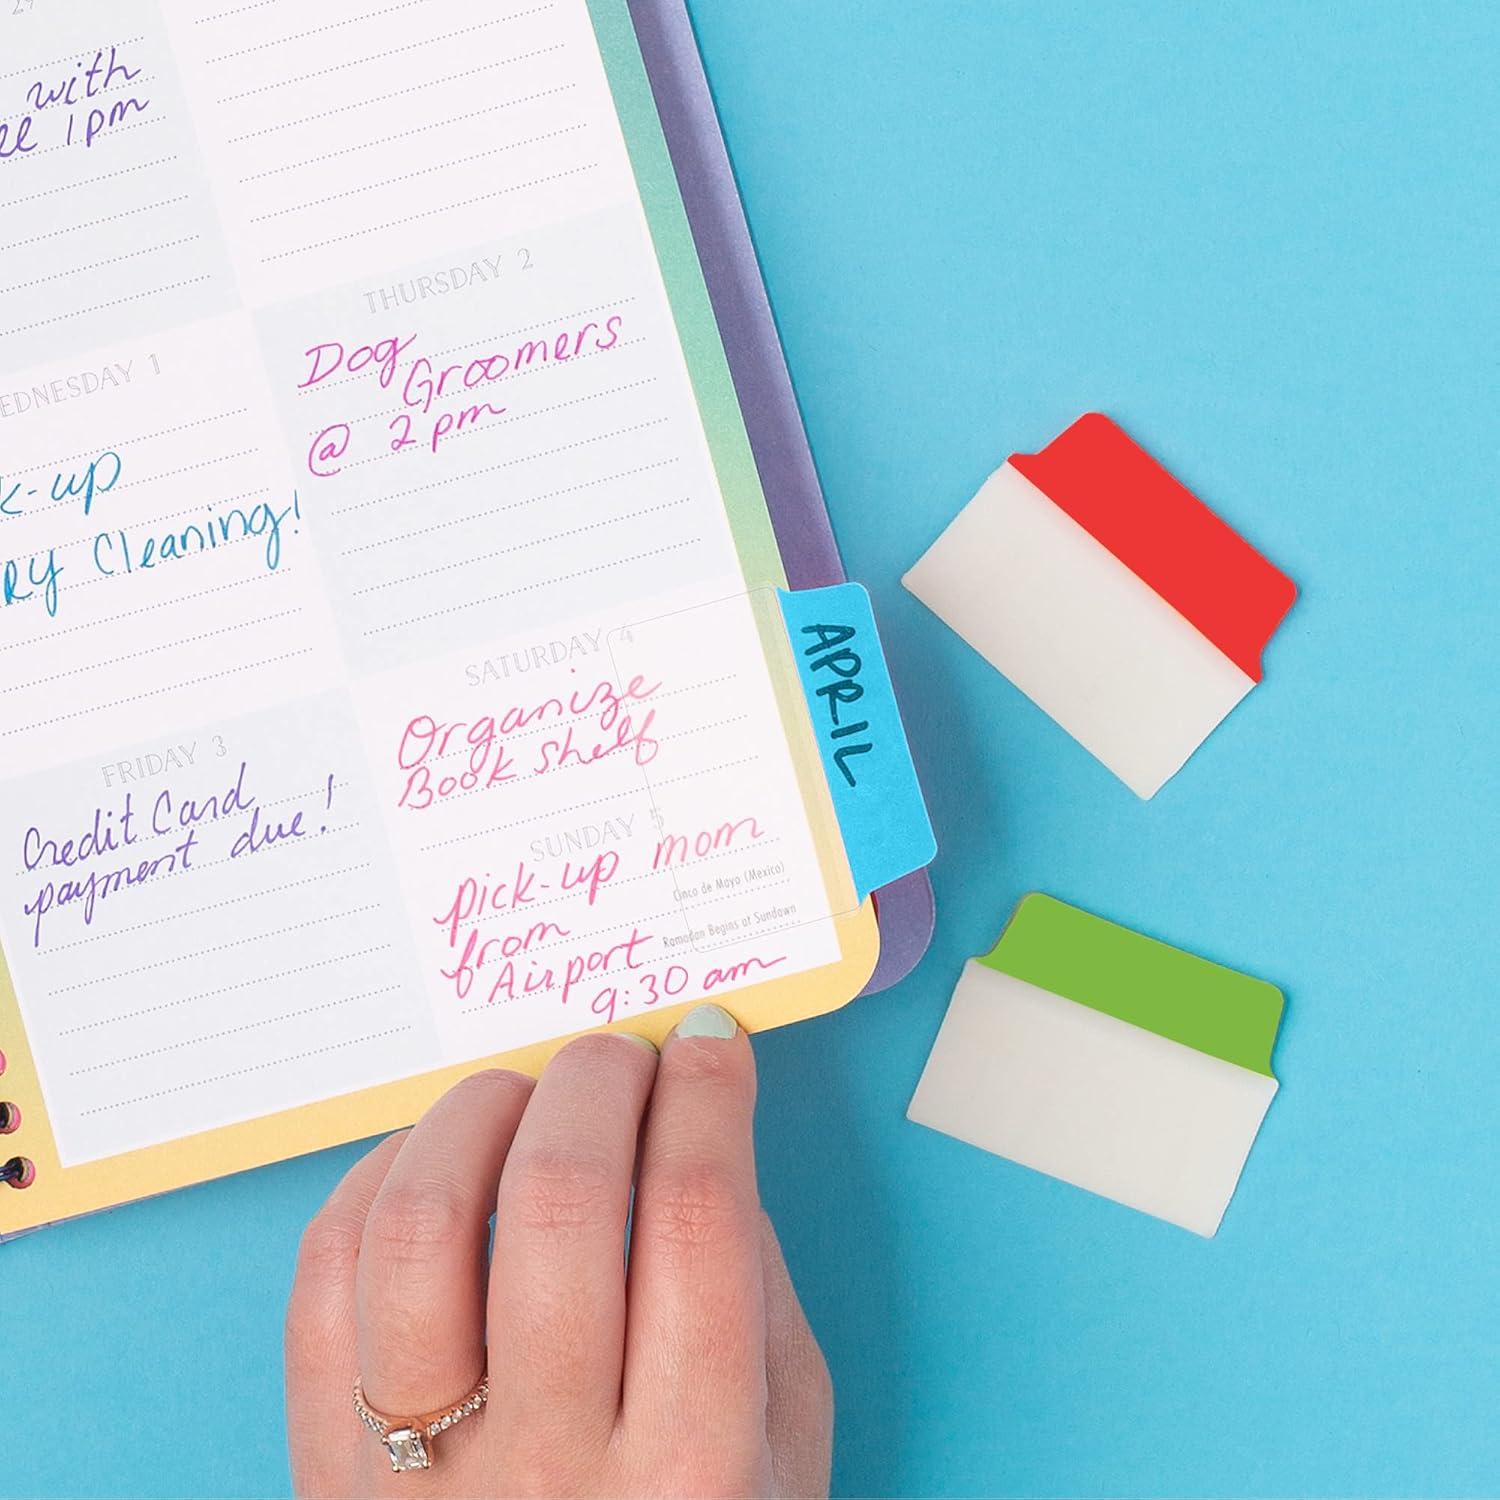 29
with
1pm
THURSDAY 2
Dog
Groomers
@ 2pm
WEDNESDAY 1
k-up
Ry Cleaning!
FRIDAY 3
Credit Card
payment due!
SATURDAY 4
Organize
Book Shelf
SUNDAY 5
pick-up mom
Cinco de Mayo (Mexico)
from
Ramadan Begins at Sundown
Airport
9:30 am
APRIL